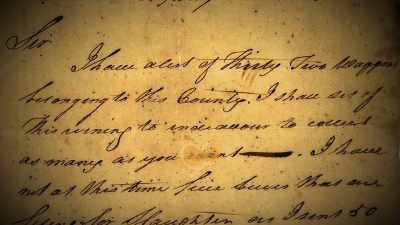 Sir
I have a list of Thirty Two Waggons
belonging to this County. I shall set of
this evning to endeavour to collect
as many as you want. I have
not at this time five Beeves that are
fit for Slaughter as I sent 50